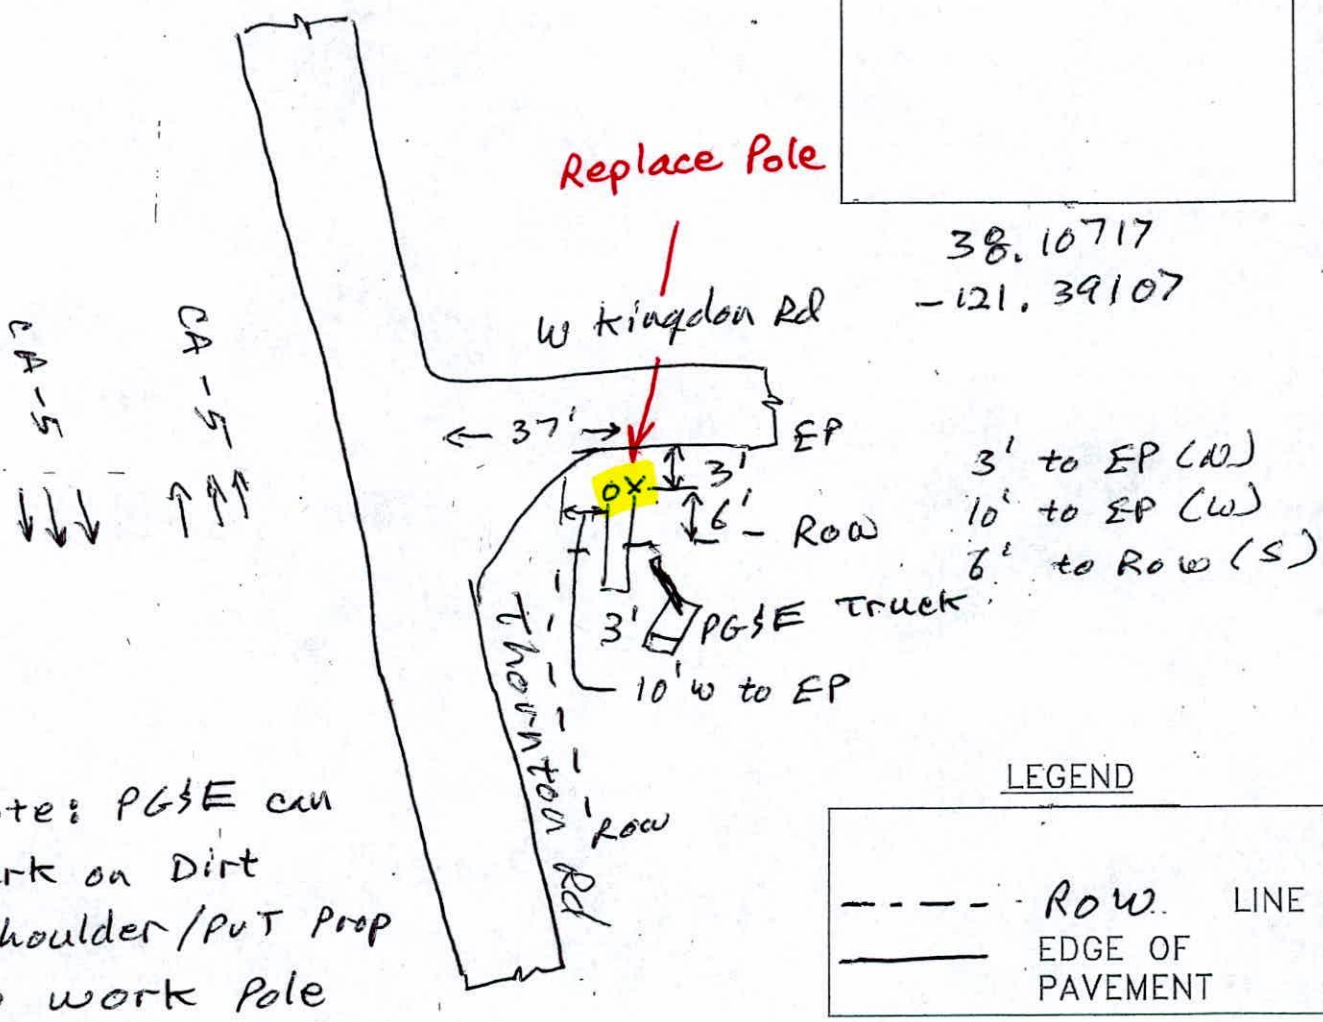 Replace Pole
38.10717
-121.39107
W Kingdon Rd
CA-5
CA-5
37'
EP
OX
3'
6'
ROW
3' to EP (N)
10' to EP (W)
6' to Row (S)
PG&E Truck
3'
10' W to EP
Thornton Rd
ROW
te: PG&E can
rk on Dirt
houlder/PVT Prop
work Pole
LEGEND
ROW LINE
EDGE OF
PAVEMENT